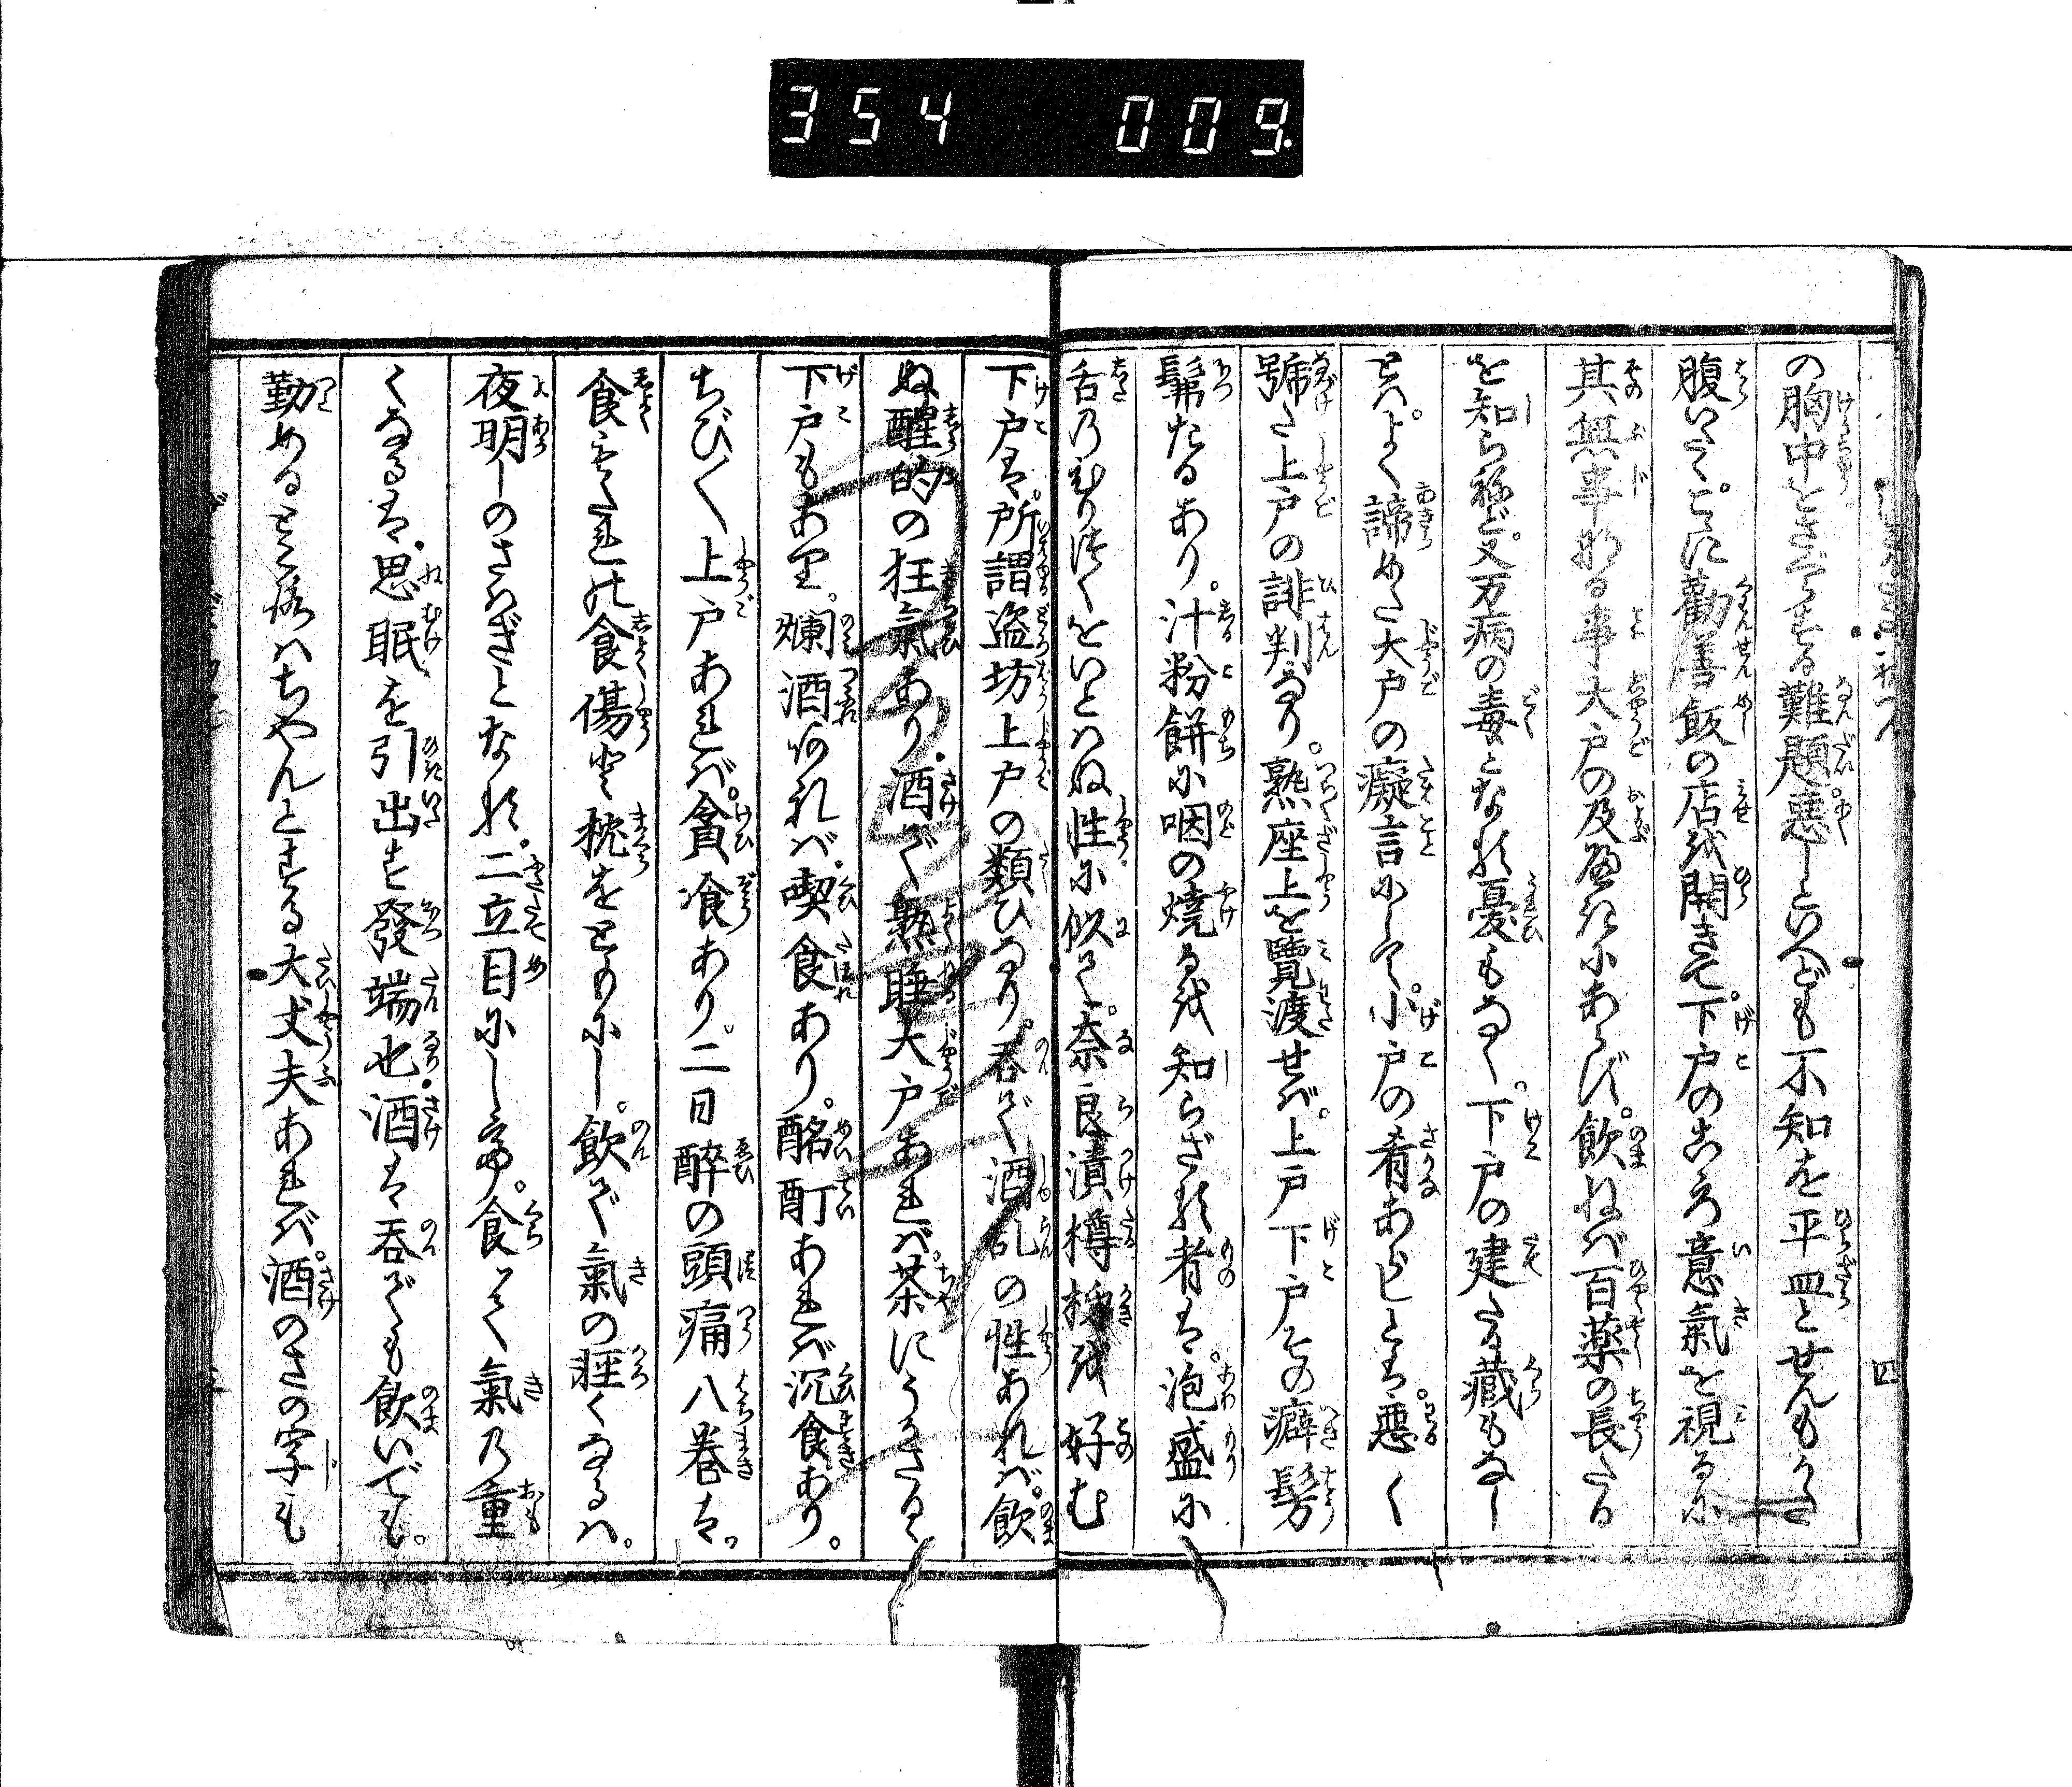 354 009
四
の胸中をさぐらする難題。悪しといへども不知を平皿とせんもうさ
腹いさく。こゝに勸善飯の店を開きて。下戸のあるう意氣を視るに
其無事なる事大戸の及ぶ處にあらず。飲ねば百薬の長たる
を知らねど。又万病の毒となる憂もなく。下戸の建たる藏もなし
とは。よく諦めた大戸の癡言にして。小戸の肴あらしとは。悪く
號た上戸の誹判なり。熟座上を覽渡せば。上戸下戸その癖髣
髴たるあり。汁粉餅に咽の焼るを知らざる者は。泡盛に
舌のひりつくをいとはぬ性に似て。奈良漬樽柿を好む
下戸は。所謂盗坊上戸の類ひなり。呑で酒乱の性あれば。飲
ぬ醒的の狂氣あり。酒で熟睡大戸あれば。茶にうかさるゝ
下戸もあり。爛酒あれば。喫食あり。酩酊あれば沉食あり。
ちびく上戸あれば。貪飡あり。二日醉の頭痛八巻は。
食もたれの食傷と枕をともにし。飲で氣の軽くなるハ。
夜明しのさハぎとなれ。二立目にして。食て氣の重
くなるは。思眠を引出す發端也。酒は呑でも飲いでも。
勤めるところハちやんとする大丈夫あれば。酒のさの字も